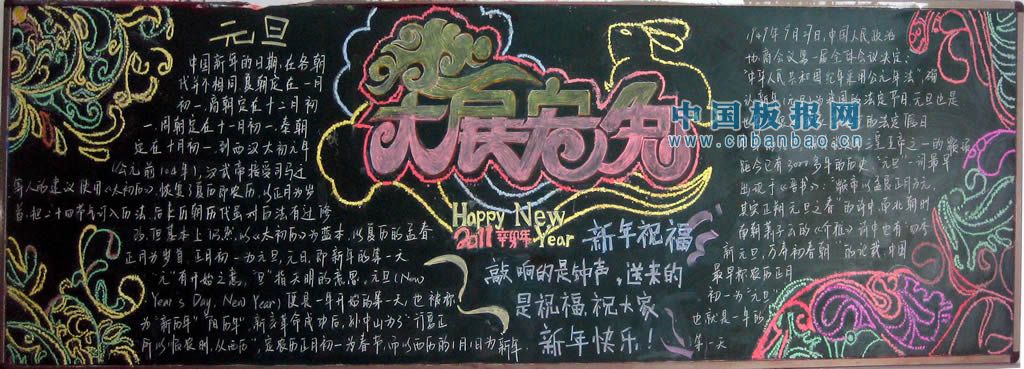 元旦
中国新年的日期,在各朝
代并不相同.夏朝定在一月
初一,商朝定在十二月初
一,周朝定在十一月初一,秦朝
定在十月初一,到西汉太初元年
(公元前104年),汉武帝接受司马迁
等人的建议使用《太初历》,恢复了夏历即农历,以正月为岁
首,把二十四节气订入历法,后上历朝历代虽对历法有过修
改,但基本上仍然以《太初历》为蓝本,以夏历的孟春
正月为岁首,正月初一为元旦,元日,即新年的第一天
"元"有开始之意,"旦"指天明的意思.元旦(New
Year's Day, New Year)便是一年开始的第一天也被称
为"新历年""阳历年".新亥革命成功后,孙中山为了"行夏正
所以顺农时,从西历",定农历正月初一为春节,而以西历的1月1日为新年.
大展宏兔
Happy New
2011 辛卯年 Year
新年祝福
敲响的是钟声,送来的
是祝福,祝大家
新年快乐!
1949年9月27日,中国人民政治
协商会议第一届全体会议决定:
"中华人民共和国纪年采用公元年法",确
法定节日.元旦也是
的法定假日
皇帝之一的
距今已有3000多年的历史."元旦"一词最早
出现于《晋书》:
其实正朔元旦之春"的诗中.南北朝时
南朝萧子云的《介雅》诗中也有"四季
新元旦,万寿初春朝"的记载.中国
最早称农历正月
初一为"元旦"
也就是一年的
第一天
中国板报网
www.cnbanbao.cn